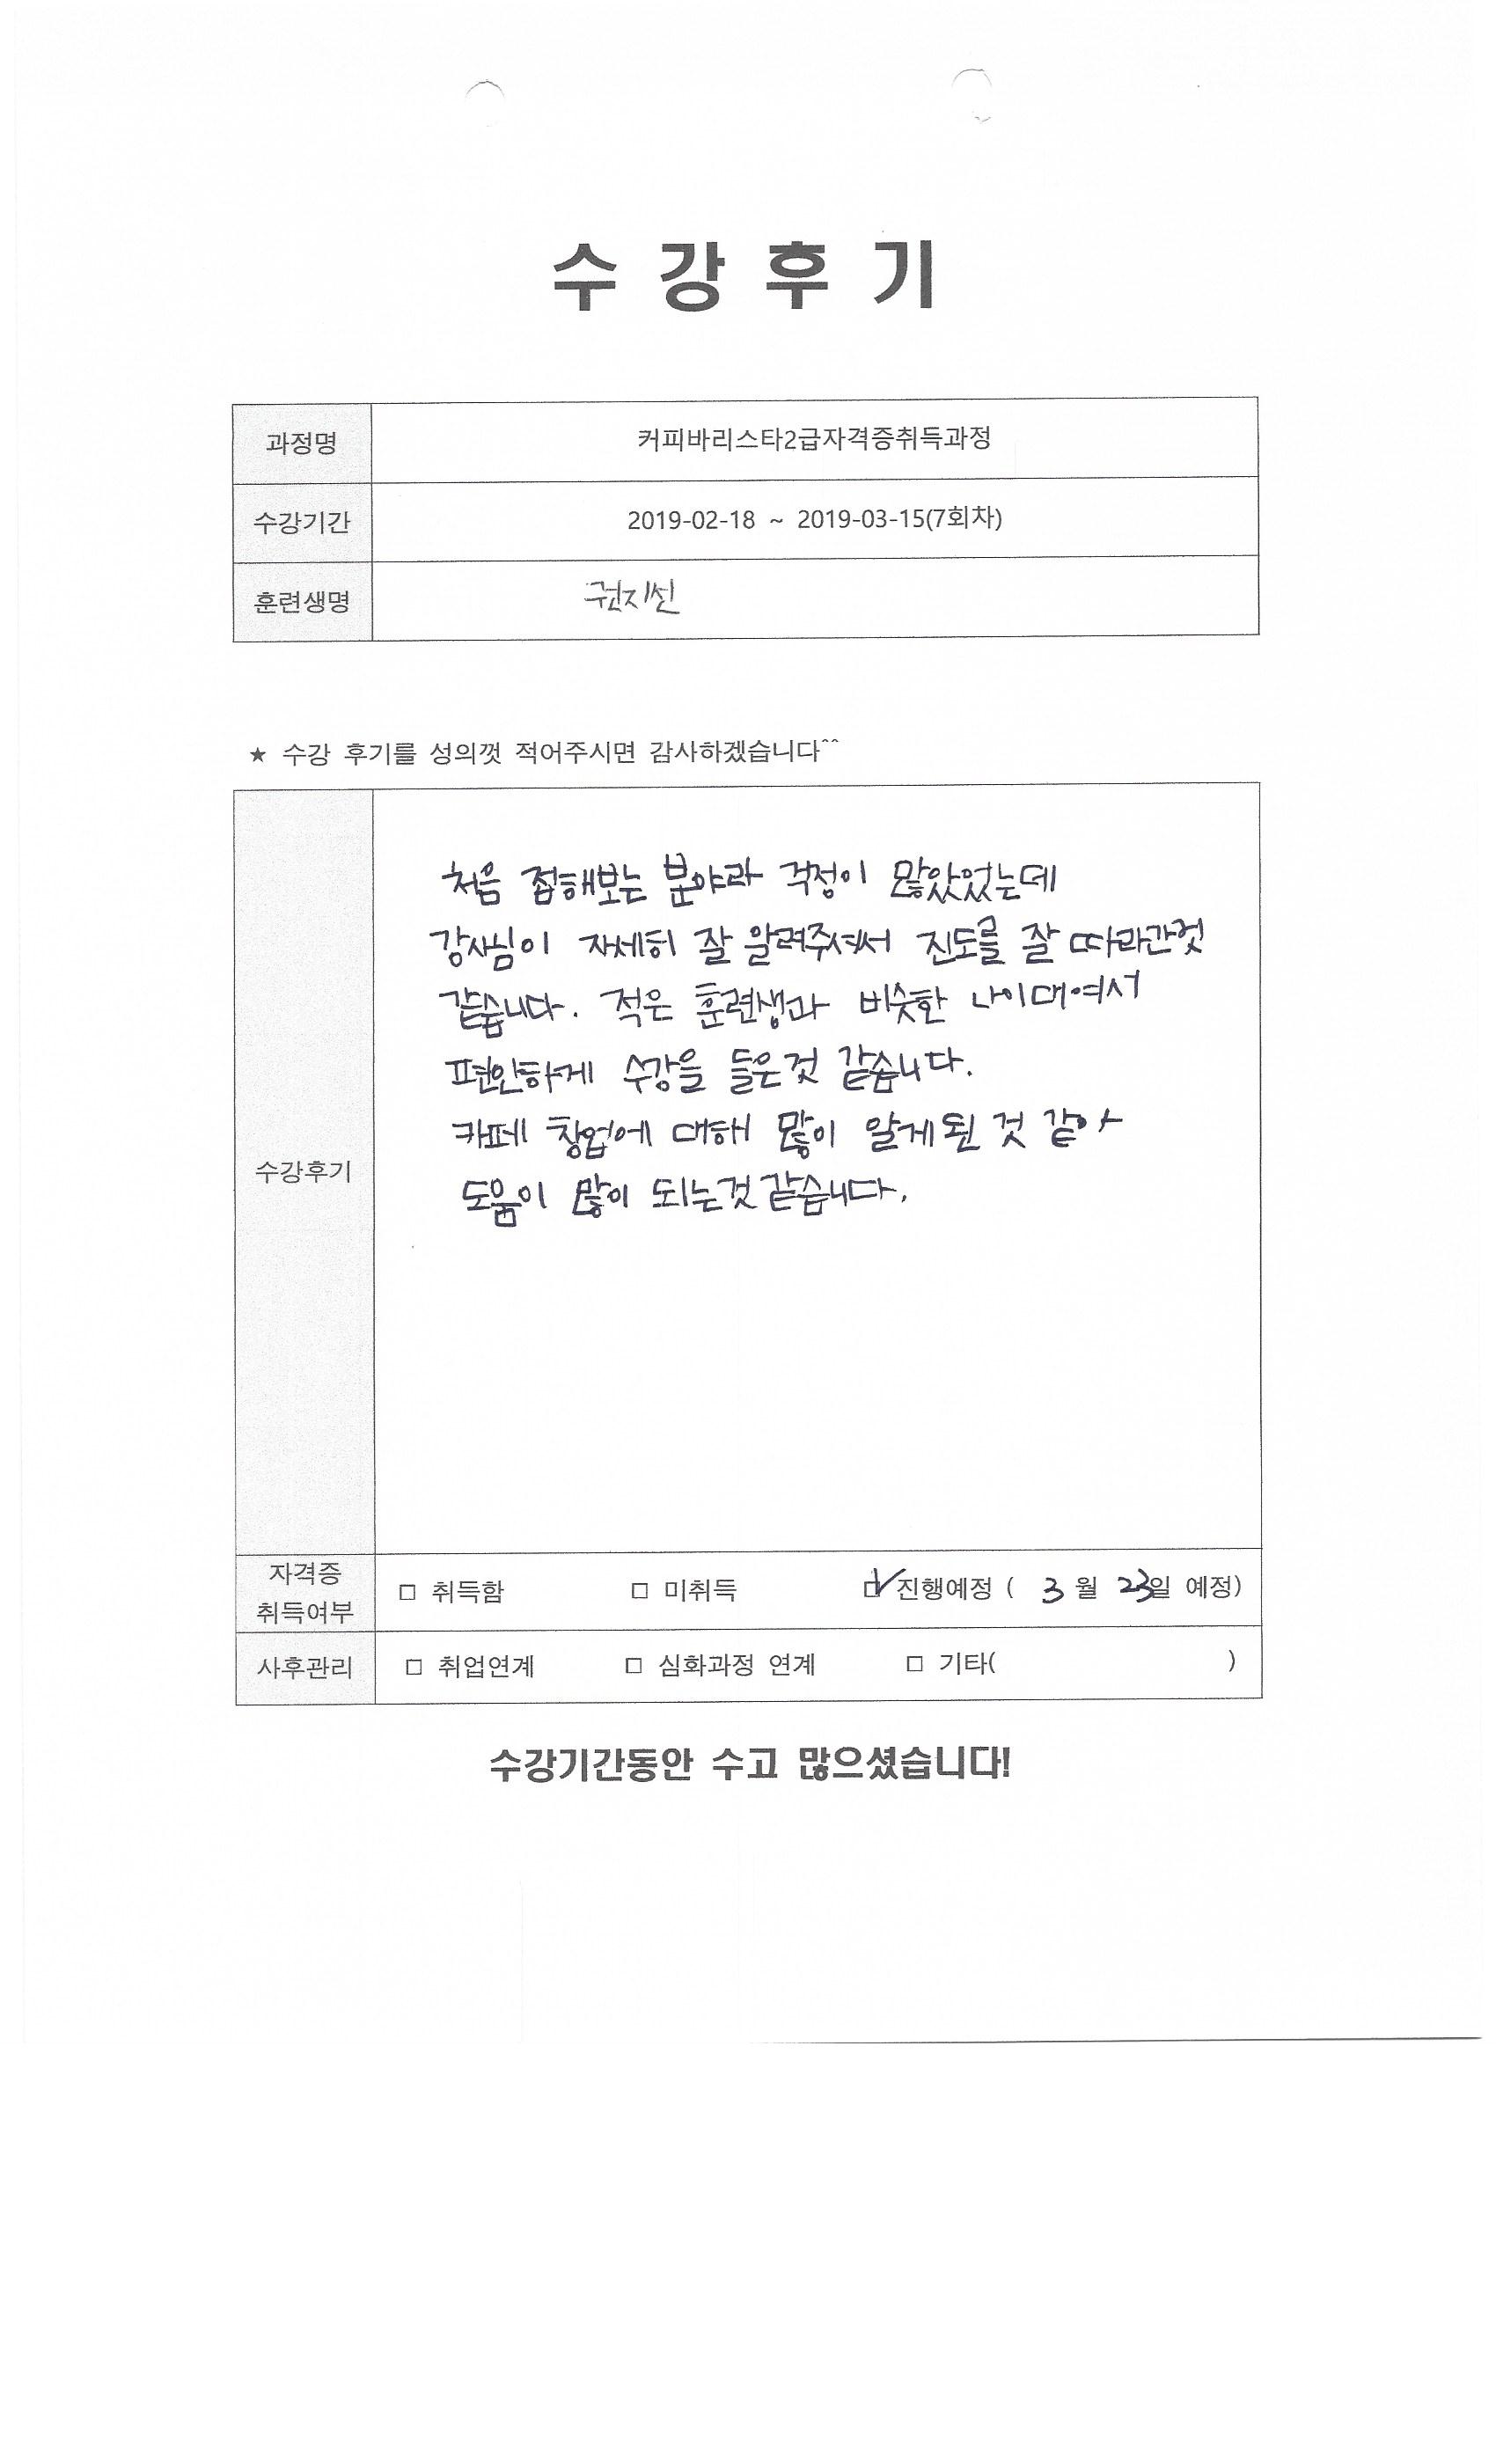 수 강 후 기
과정명 커피바리스타2급자격증취득과정
수강기간 2019-02-18 ~ 2019-03-15(7회차)
훈련생명 권지선
★ 수강 후기를 성의껏 적어주시면 감사하겠습니다^^
수강후기
처음 접해보는 분야라 걱정이 많았었는데
강사님이 자세히 잘 알려주셔서 진도를 잘 따라간것
같습니다. 적은 훈련생과 비슷한 나이대여서
편안하게 수강을 들은것 같습니다.
카페 창업에 대해 많이 알게된 것 같아
도움이 많이 되는것같습니다.
자격증
취득여부 □ 취득함 □ 미취득 ☑ 진행예정 ( 3 월 23일 예정)
사후관리 □ 취업연계 □ 심화과정 연계 □ 기타( )
수강기간동안 수고 많으셨습니다!